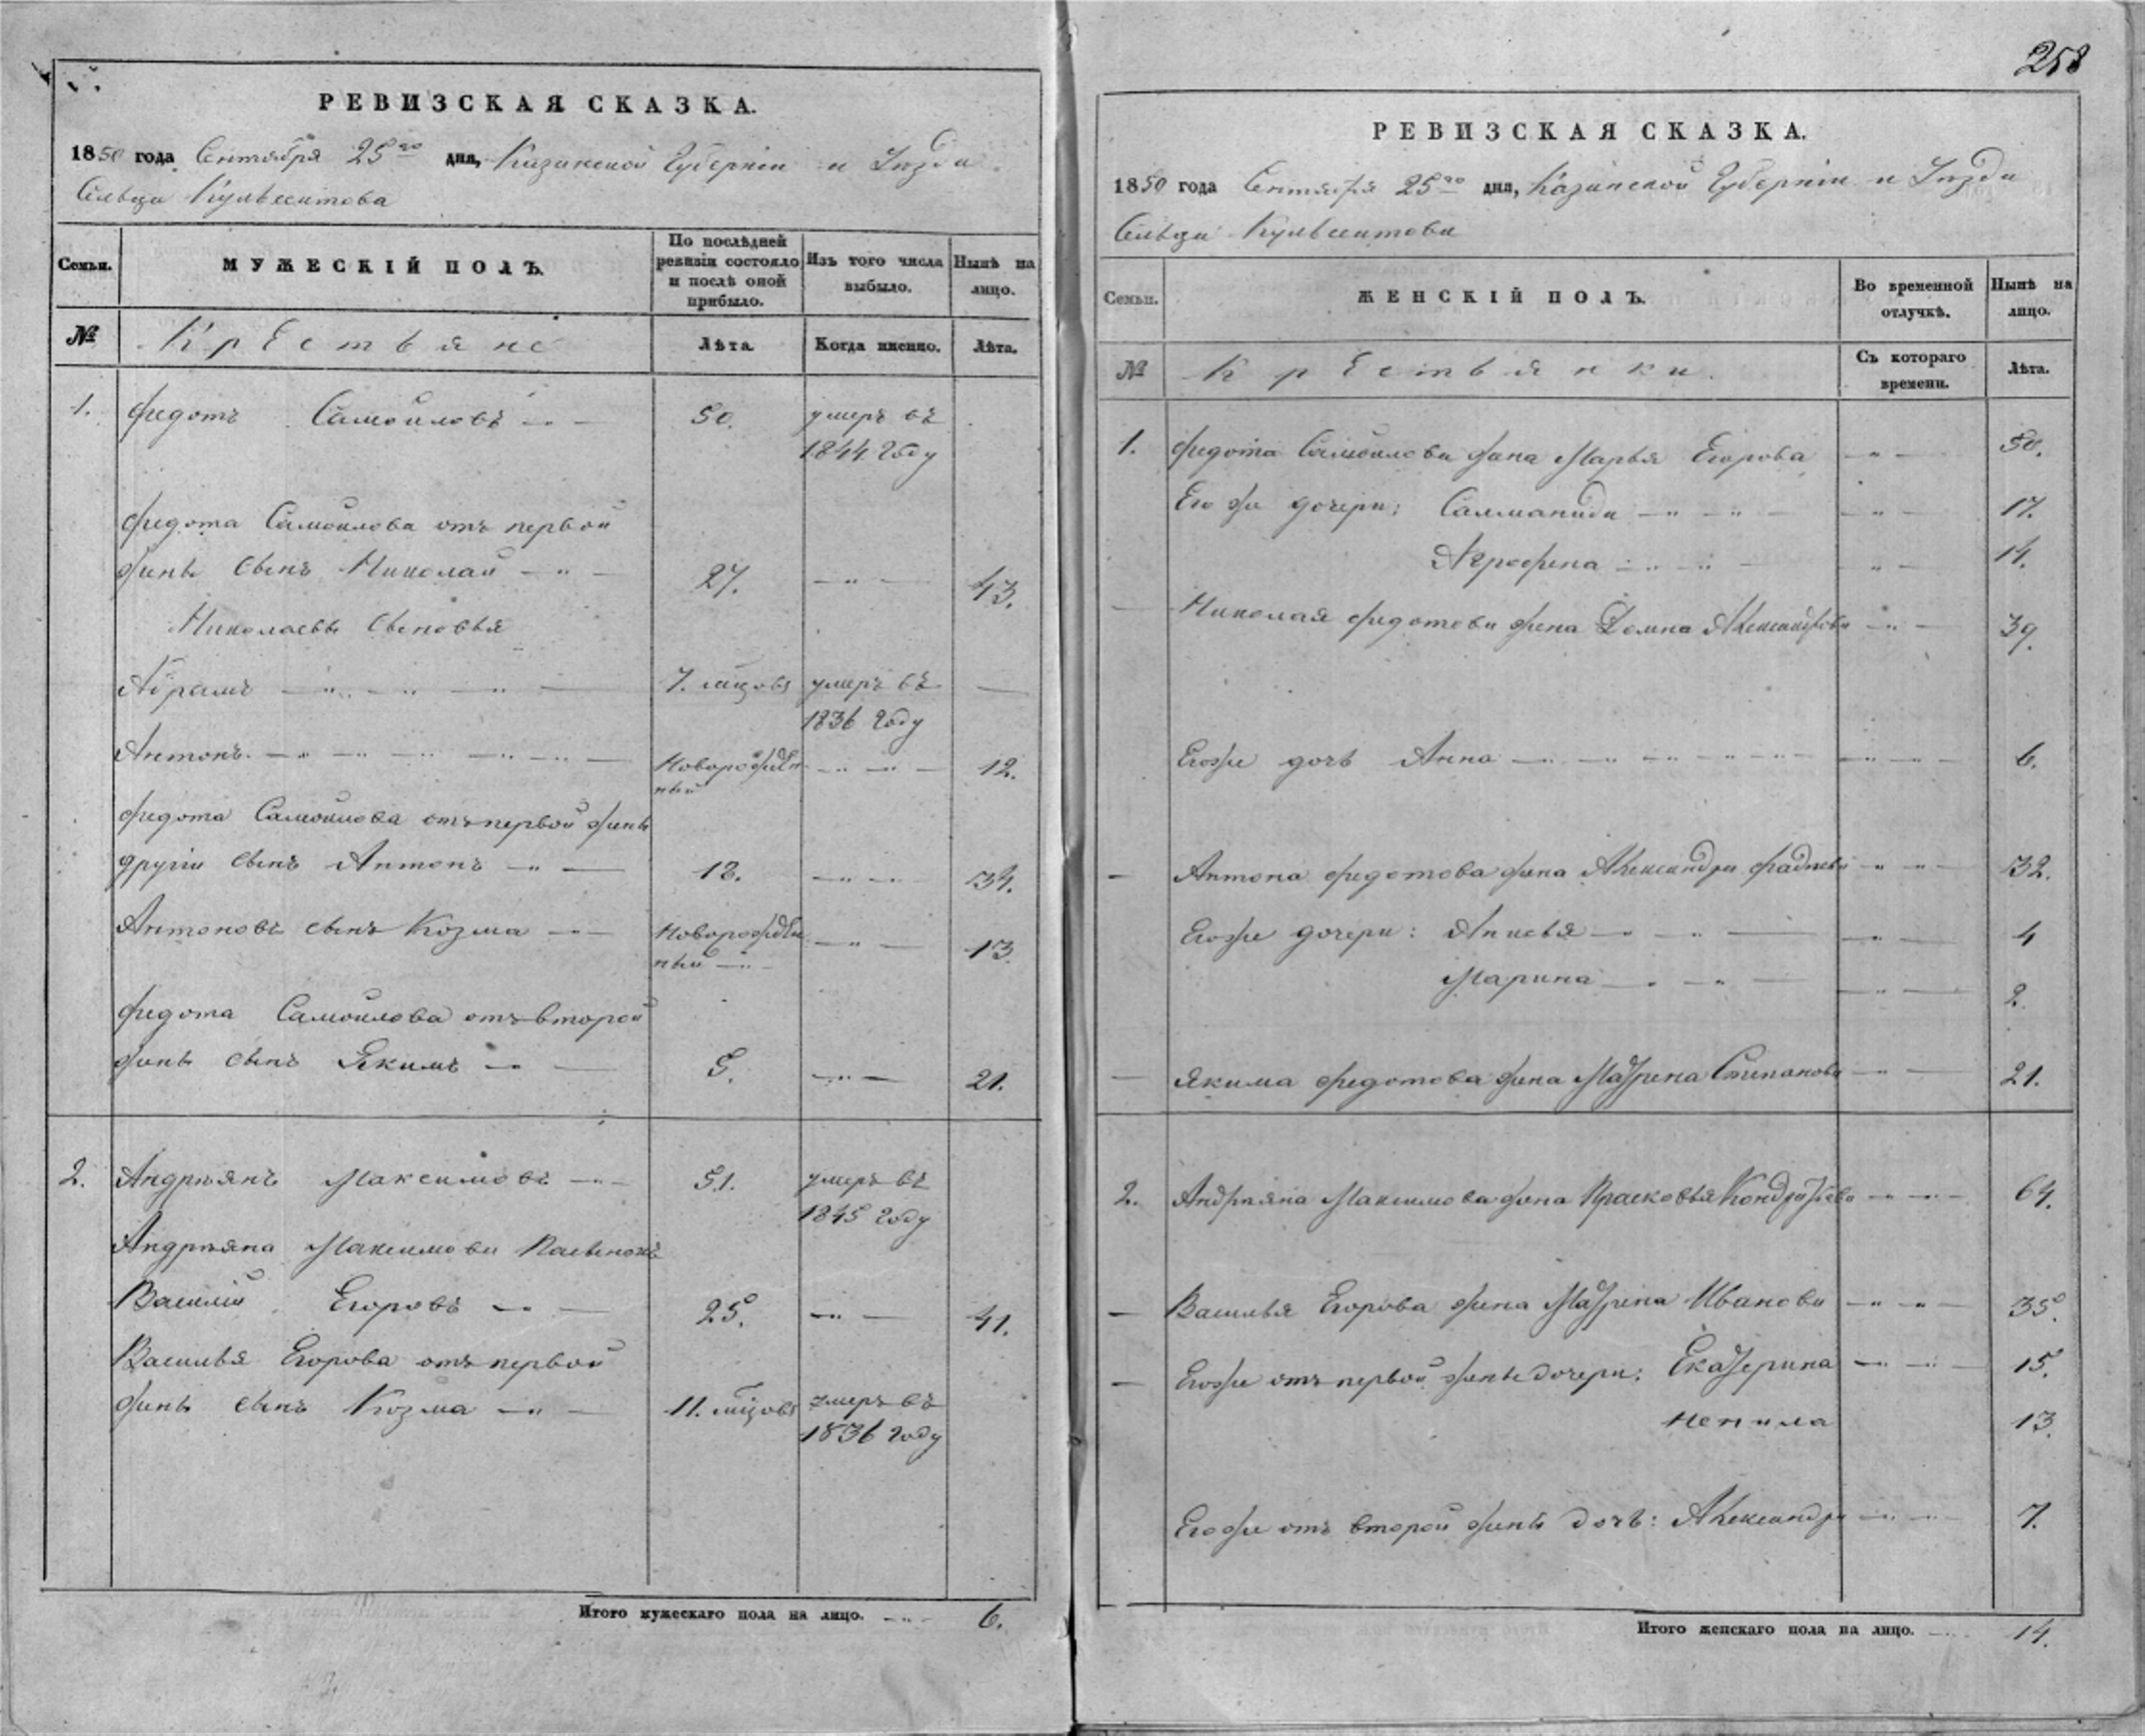 258
РЕВИЗСКАЯ СКАЗКА.
1850 года Сентября 25го дня, Казанской Губерніи и Уѣзда
Сельца Кульсеитова
Семьи.
МУЖЕСКІЙ ПОЛЪ.
По послѣдней ревизіи состояло и послѣ оной прибыло.
Изъ того числа выбыло.
Нынѣ на лицо.
№
Крестьяне
Лѣта
Когда именно.
Лѣта.
1. Федотъ Самойловъ 50. умеръ въ
1844 году
Федота Самойлова отъ первой
жены сынъ Николай 27. 43.
Николаевы сыновья
Абрамъ 7. мѣсцовъ умеръ въ
1836 году
Антонъ Новорожден 12.
ный
Федота Самойлова отъ первой жены
другій сынъ Антонъ 18. 34.
Антоновъ сынъ Козма Новорожден 13.
ный
Федота Самойлова отъ второй
жены сынъ Якимъ 5. 21.
2. Андреянъ Максимовъ 51. умеръ въ
1845 году
Андреяна Максимова Пасынокъ
Василій Егоровъ 25. 41.
Василья Егорова отъ первой
жены сынъ Козма 11. мѣсцовъ умеръ въ
1836 году
Итого мужескаго пола на лицо. 6.
РЕВИЗСКАЯ СКАЗКА.
1850 года Сентября 25го дня, Казанской Губерніи и Уѣзда
Сельца Кульсеитова
Семьи.
ЖЕНСКІЙ ПОЛЪ.
Во временной отлучкѣ.
Нынѣ на лицо.
№
Крестьянки.
Съ котораго времени.
Лѣта.
1. Федота Самойлова жена Марья Егорова 50.
Его же дочери: Салманида 17.
Агрофена 14.
Николая Федотова жена Домна Александрова 39.
Егоже дочь Анна 6.
Антона Федотова жена Александра Фадиева 32.
Егоже дочери: Анисья 4
Марина 2.
Якима Федотова жена Матрена Степанова 21.
2. Андреяна Максимова жена Прасковья Кондратьева 64.
Василья Егорова жена Матрена Иванова 35.
Егоже отъ первой жены дочери: Екатерина 15.
Ненила 13.
Егоже отъ второй жены дочь: Александра 7.
Итого женскаго пола на лицо. 14.